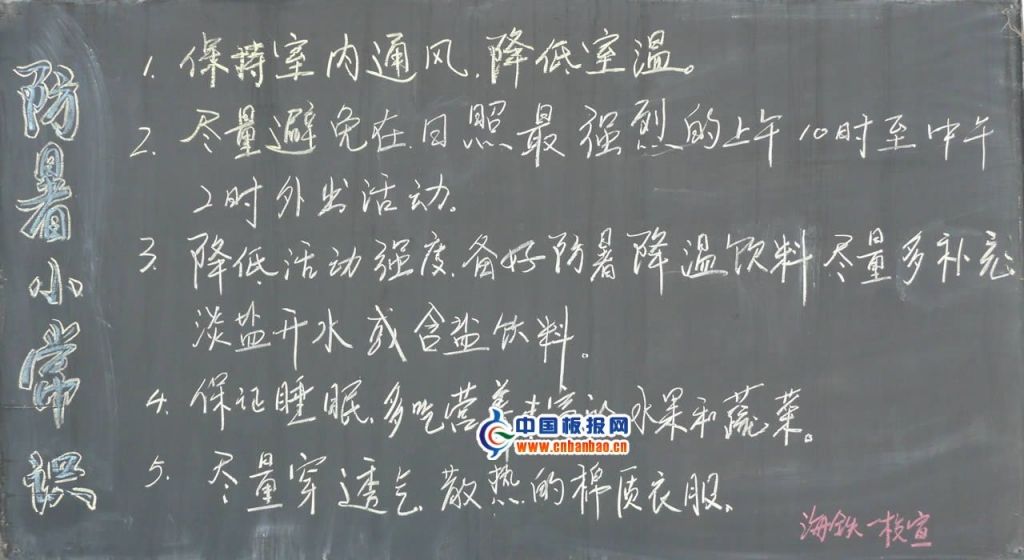 防暑小常识
1. 保持室内通风、降低室温。
2. 尽量避免在日照最强烈的上午10时至中午
2时外出活动。
3. 降低活动强度、备好防暑降温饮料尽量多补充
淡盐开水或含盐饮料。
4. 保证睡眠、多吃营养丰富的水果和蔬菜。
中国板报网
www.cnbanbao.cn
5. 尽量穿透气散热的棉质衣服。
海铁一校宣